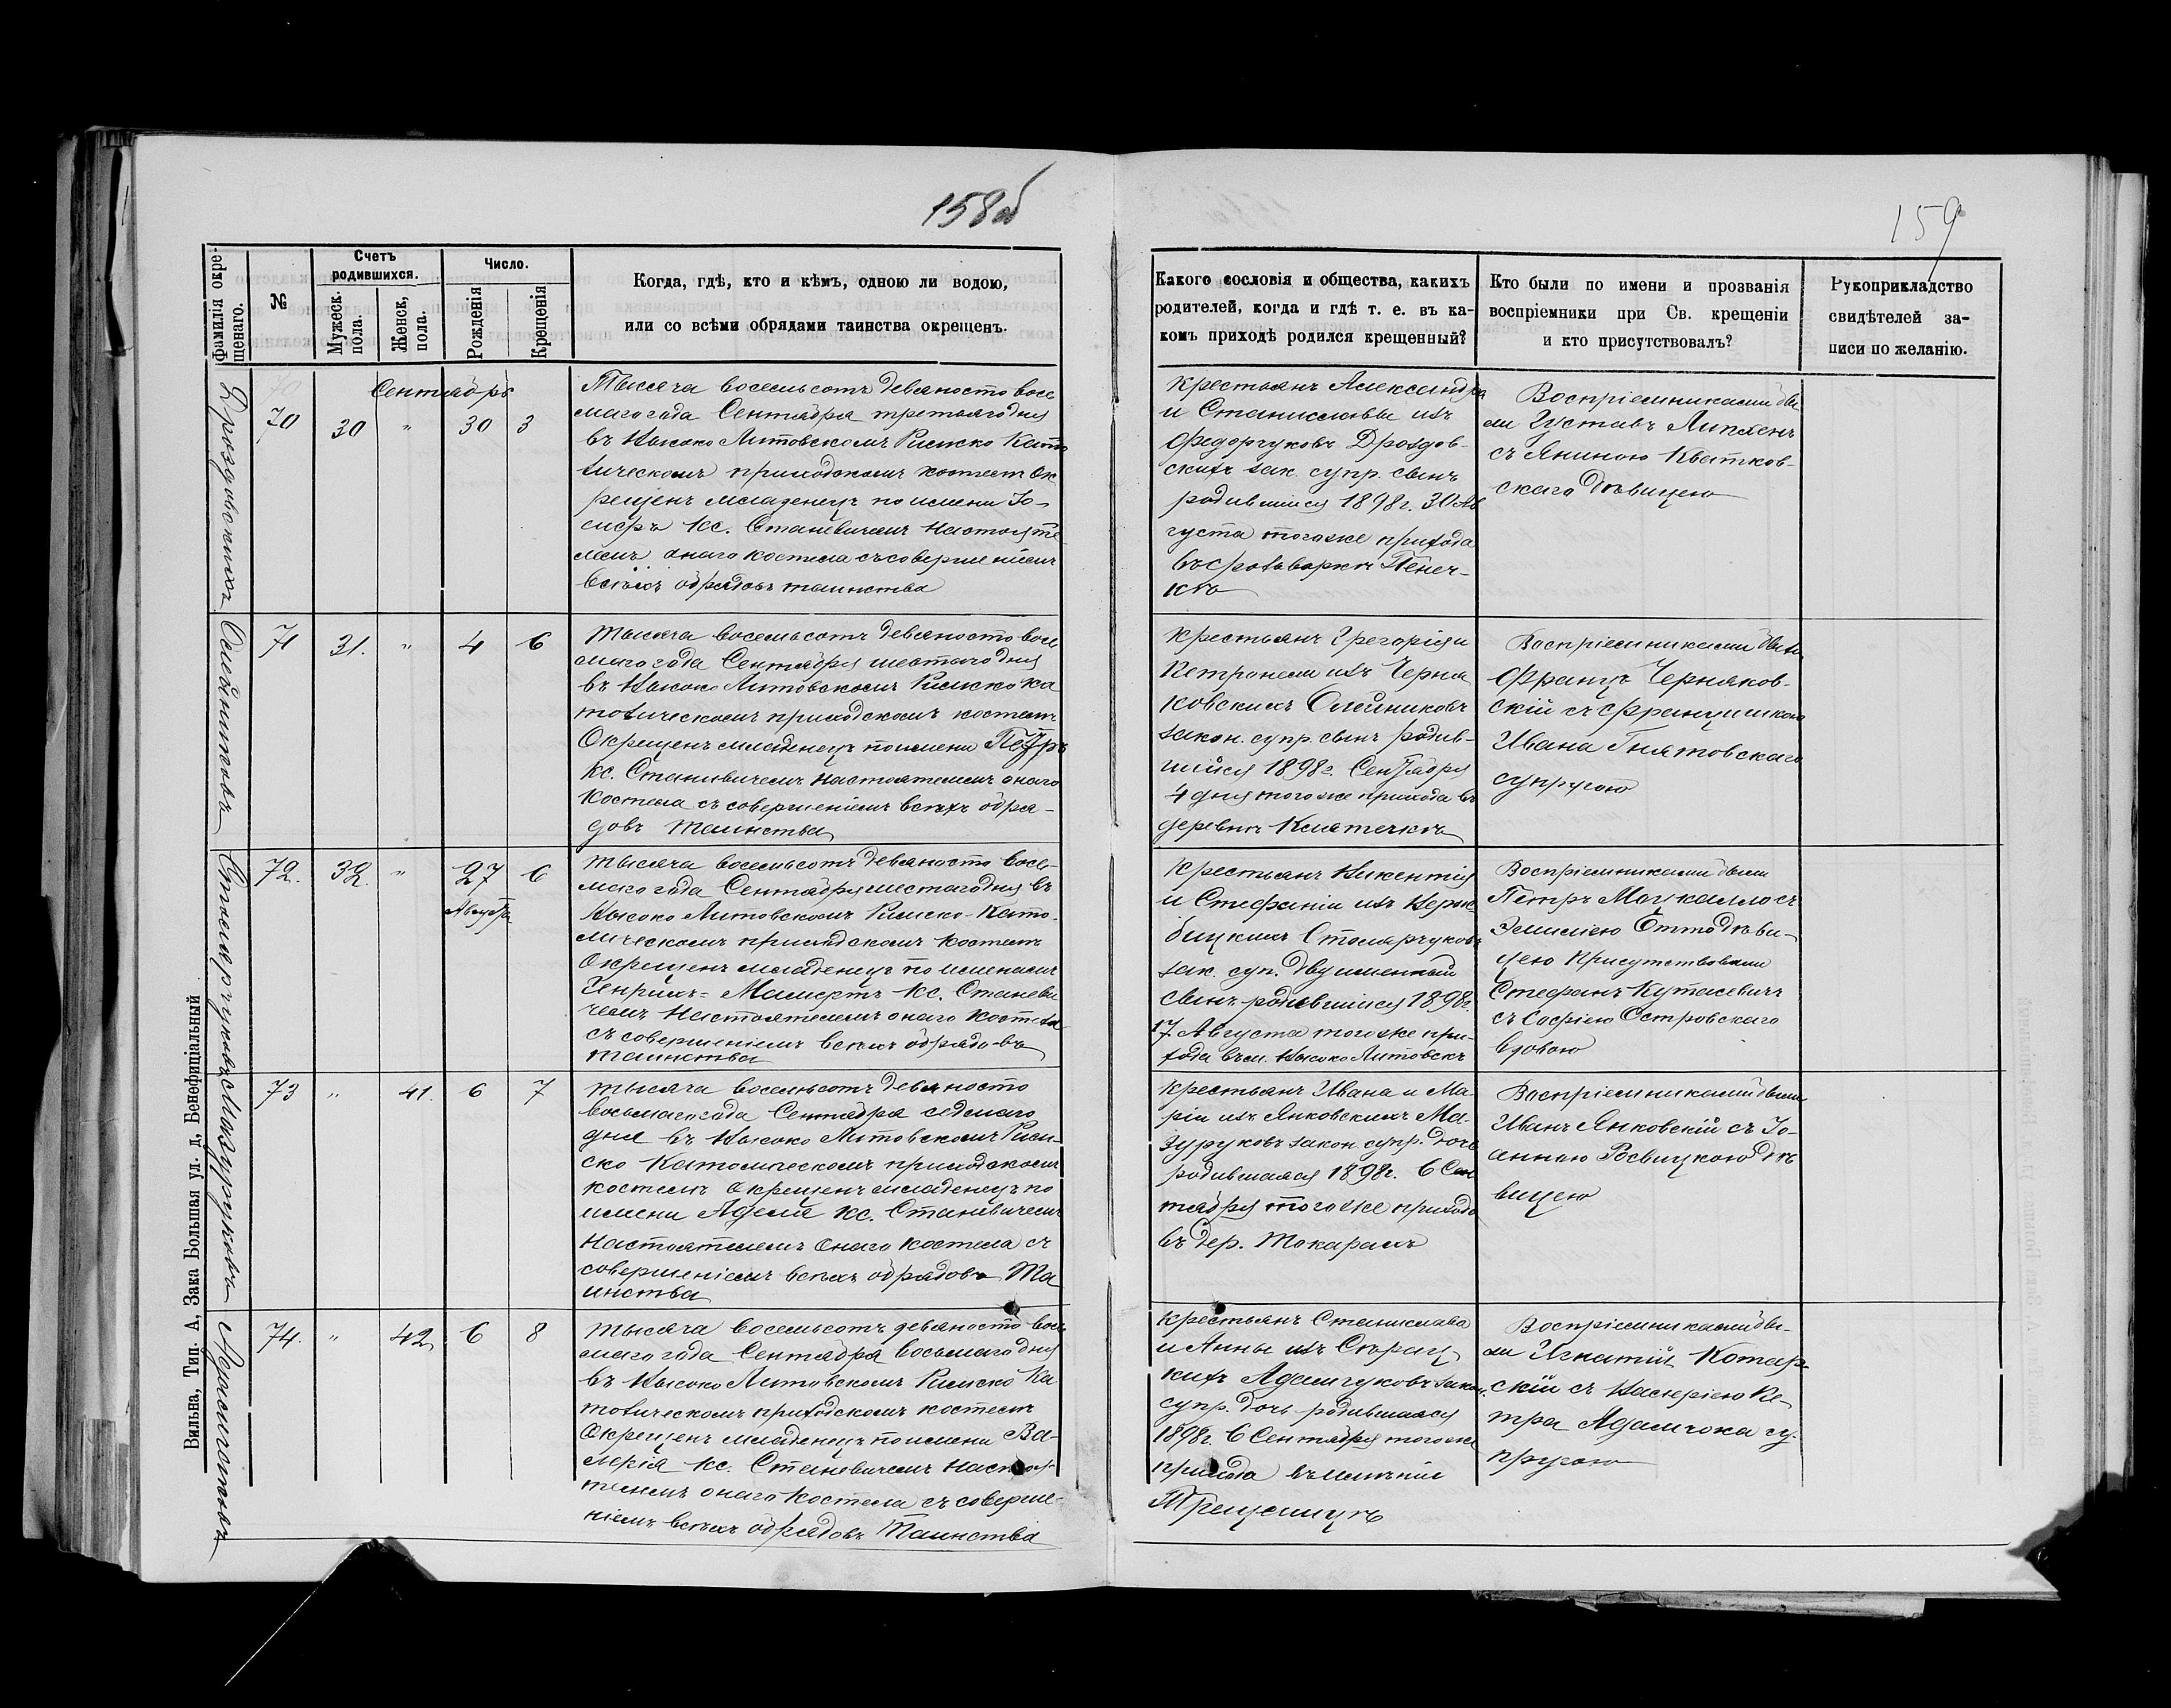 158об
159
Фамилія окрещенаго.
№
Счетъ родившихся.
Мужеск. пола.
Женск, пола.
Число.
Рожденія
Крещенія
Когда, гдѣ, кто и кѣмъ, одною ли водою,
или со всѣми обрядами таинства окрещенъ.
Какого сословія и общества, какихъ
родителей, когда и гдѣ т. е. въ ка-
комъ приходѣ родился крещенный?
Кто были по имени и прозванія
воспріемники при Св. крещеніи
и кто присутствовалъ?
Рукоприкладство
свидѣтелей за-
писи по желанію.
Сентябрь
Дроздовскихъ
70 30 " 30 3
Тысяча восемьсотъ девяносто вось
маго года Сентября третьяго дня
въ Высоко Литовскомъ Римско Като
лическомъ приходскомъ костелѣ Ок
рещенъ младенецъ по имени Іо-
сифъ Кс. Станевичемъ Настояте
лемъ онаго костела съ совершеніемъ
всѣхъ обрядовъ таинства
Крестьянъ Александра
и Станиславы изъ
Федорчуковъ Дроздов-
скихъ зак. супр. сынъ
родившійся 1898г. 30 Ав
густа того же прихода
въ фольваркѣ Пенеч-
кѣ
Воспріемниками бы
ли Густавъ Липленъ
съ Яниною Кватков-
скаго дѣвицею
Олейниковъ
71 31. " 4 6
Тысяча восемьсотъ девяносто вось
маго года Сентября шестаго дня
въ Высоко Литовскомъ Римско Ка
толическомъ приходскомъ костелѣ
Окрещенъ младенецъ по имени Петръ
Кс. Станевичемъ Настоятелемъ онаго
Костела съ совершеніемъ всѣхъ обря-
довъ Таинства
Крестьянъ Грегорія и
Петронели изъ Черня
ковскихъ Олейниковъ
закон. супр. сынъ родив-
шійся 1898г. Сентября
4 дня того же прихода въ
деревнѣ
Воспріемниками были
Францъ Черняков-
скій съ Францишкою
Ивана Гнятовскаго
супругою
Столярчуковъ
72. 32. " 27 6
Августа
Тысяча восемьсотъ девяносто вось-
маго года Сентября шестаго дня въ
Высоко Литовскомъ Римско-Като-
лическомъ приходскомъ костелѣ
Окрещенъ младенецъ по именамъ
Генрихъ-Мамертъ Кс. Станеви
чемъ Настоятелемъ онаго костела
съ совершеніемъ всѣхъ обрядовъ
Таинства
Крестьянъ Викентія
и Стефаніи изъ Верж
бицкихъ Столярчуковъ
зак. суп. двуименный
сынъ родившійся 1898г.
17 Августа того же при-
хода въ м. Высоко Литовскъ
Воспріемниками были
Петръ съ
Эмиліею Отто дѣви-
цею Присутствовали
Стефанъ Куташевичъ
съ Софіею Островскаго
вдовою
Мазуруковъ
73 " 41. 6 7
Тысяча восемьсотъ девяносто
восьмаго года Сентября седмаго
дня въ Высоко Литовскомъ Рим-
ско Католическомъ приходскомъ
костелѣ Окрещенъ младенецъ по
имени Аделя Кс. Станевичемъ
Настоятелемъ онаго костела съ
совершеніемъ всѣхъ обрядовъ Та
инства
Крестьянъ Ивана и Ма-
ріи изъ Янковскихъ Ма-
зуруковъ закон. супр. дочь
родившаяся 1898г. 6 Сен
тября того же прихода
въ дер. Токарахъ
Воспріемниками были
Иванъ Янковскій съ Іо-
анною дѣ
вицею
Адамчуковъ
74. " 42 6 8
Тысяча восемьсотъ девяносто вось
маго года Сентября восьмаго дня
въ Высоко Литовскомъ Римско Ка
толическомъ приходскомъ костелѣ
Окрещенъ младенецъ по имени Ва-
лерія Кс. Станевичемъ Настоя
телемъ онаго костела съ соверше-
ніемъ всѣхъ обрядовъ Таинства
Крестьянъ Станислава
и Анны изъ Сѣрац-
кихъ Адамчуковъ закон.
супр. дочь родившаяся
1898г. 6 Сентября того же
прихода въ имѣніи
Воспріемниками бы-
ли Игнатій Котар-
скій съ Валеріею Пе-
тра Адамчока су-
пругою
Вильна, Тип. А, Зака Большая ул. д, Бенефиціальный